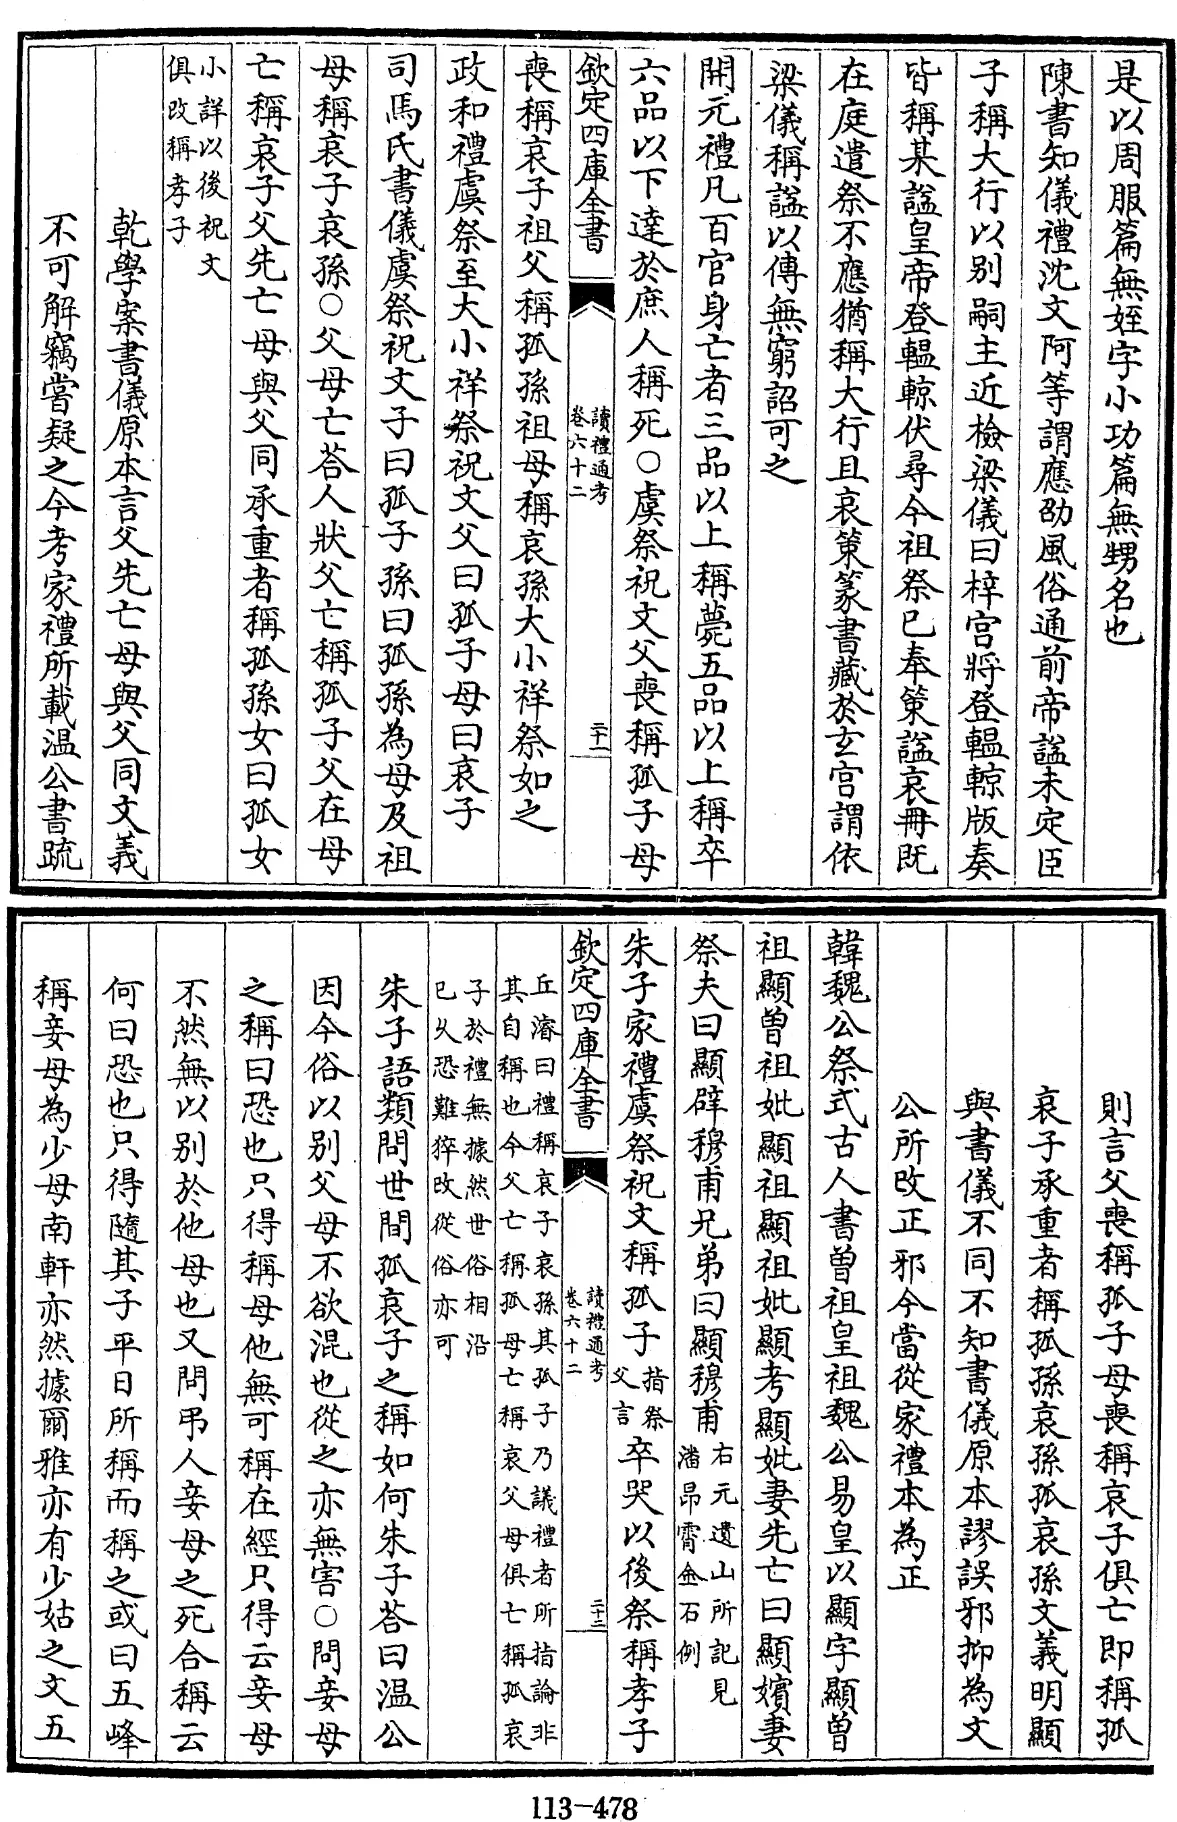 是以周服篇無姪字小功篇無甥名也
陳書知儀禮沈文阿等謂應劭風俗通前帝諡未定臣
子稱大行以别嗣主近檢梁儀曰梓宫將登轀輬版奏
皆稱某諡皇帝登轀輬伏尋今祖祭已奉策諡哀冊既
在庭遣祭不應猶稱大行且哀策篆書藏於玄宫謂依
梁儀稱諡以傳無窮詔可之
開元禮凡百官身亡者三品以上稱薨五品以上稱卒
六品以下達於庶人稱死○虞祭祝文父喪稱孤子母
欽定四庫全書
讀禮通考
卷六十二
二十一
喪稱哀子祖父稱孤孫祖母稱哀孫大小祥祭如之
政和禮虞祭至大小祥祭祝文父曰孤子母曰哀子
司馬氏書儀虞祭祝文子曰孤子孫曰孤孫為母及祖
母稱哀子哀孫○父母亡荅人狀父亡稱孤子父在母
亡稱哀子父先亡母與父同承重者稱孤孫女曰孤女
小詳以後祝文
俱改稱孝子
乾學案書儀原本言父先亡母與父同文義
不可解竊嘗疑之今考家禮所載温公書疏
則言父喪稱孤子母喪稱哀子俱亡即稱孤
哀子承重者稱孤孫哀孫孤哀孫文義明顯
與書儀不同不知書儀原本謬誤邪抑為文
公所改正邪今當從家禮本為正
韓魏公祭式古人書曾祖皇祖魏公易皇以顯字顯曾
祖顯曾祖妣顯祖顯祖妣顯考顯妣妻先亡曰顯嬪妻
祭夫曰顯辟穆甫兄弟曰顯穆甫
右元遺山所記見
潘昂霄金石例
朱子家禮虞祭祝文稱孤子
指祭
父言
卒哭以後祭稱孝子
欽定四庫全書
讀禮通考
卷六十二
二十二
丘濬曰禮稱哀子哀孫其孤子乃議禮者所指論非
其自稱也今父亡稱孤母亡稱哀父母俱亡稱孤哀
子於禮無據然世俗相沿
已久恐難猝改從俗亦可
朱子語類問世間孤哀子之稱如何朱子荅曰温公
因今俗以别父母不欲混也從之亦無害○問妾母
之稱曰恐也只得稱母他無可稱在經只得云妾母
不然無以别於他母也又問弔人妾母之死合稱云
何曰恐也只得隨其子平日所稱而稱之或曰五峰
稱妾母為少母南軒亦然據爾雅亦有少姑之文五
113-478